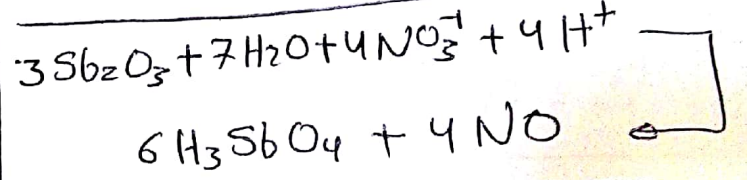 3 Sb₂O₃ + 7 H₂O + 4 NO₃⁻¹ + 4 H⁺
6 H₃SbO₄ + 4 NO